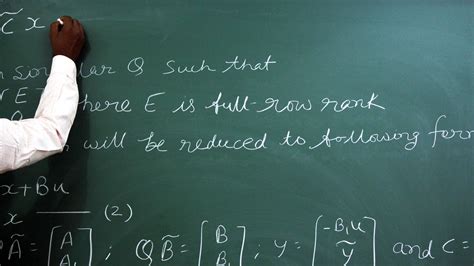 C̃ x
singular Q such that
E where E is full-row rank
will be reduced to following form
x + Bu
x —— (2)
Ã = [A A₁]; Q B̃ = [B B₁]; y = [-B₁u ỹ] and C =